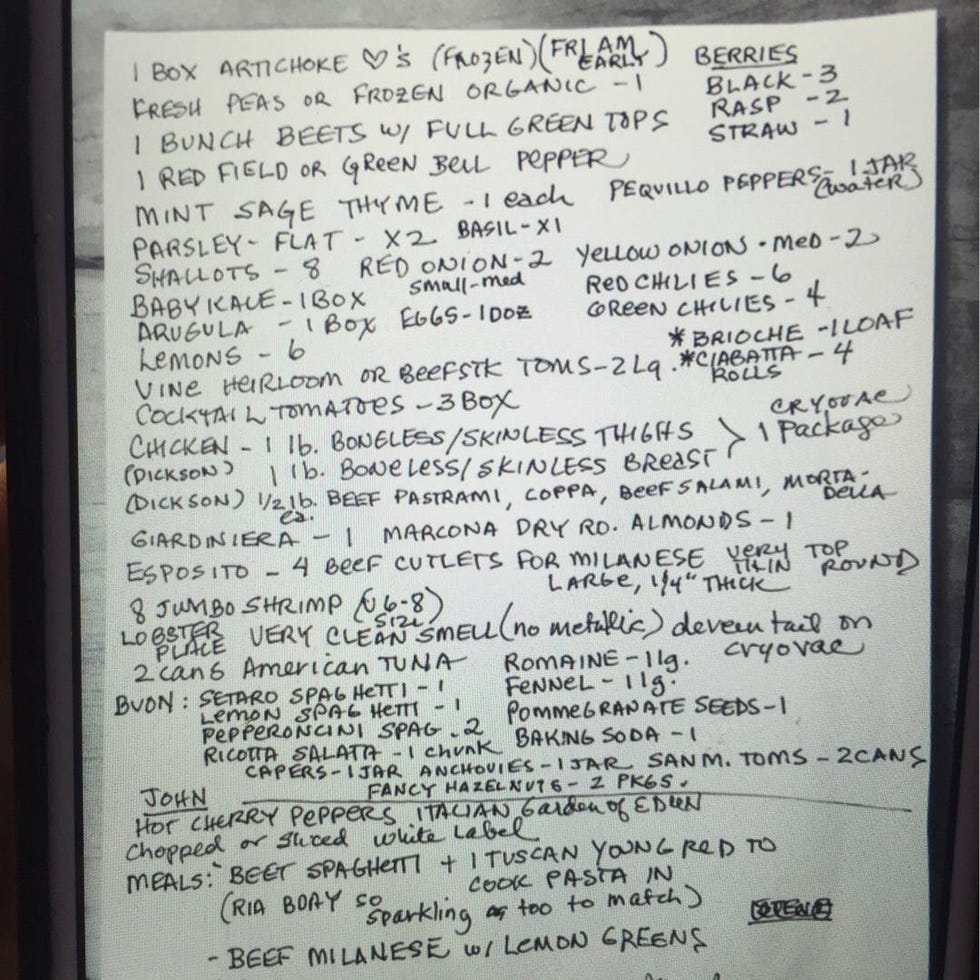 1 BOX ARTICHOKE ♡'s (FROZEN) (FRI AM EARLY) BERRIES
FRESH PEAS OR FROZEN ORGANIC - 1 BLACK - 3
1 BUNCH BEETS W/ FULL GREEN TOPS RASP - 2
STRAW - 1
1 RED FIELD OR GREEN BELL PEPPER
MINT SAGE THYME - 1 each PEQUILLO PEPPERS - 1 JAR (water)
PARSLEY - FLAT - X2 BASIL - X1
SHALLOTS - 8 RED ONION - 2 small-med YELLOW ONION • MED - 2
BABY KALE - 1 BOX RED CHILIES - 6
ARUGULA - 1 BOX EGGS - 1 DOZ GREEN CHILIES - 4
LEMONS - 6 *BRIOCHE - 1 LOAF
VINE HEIRLOOM OR BEEFSTK TOMS - 2 Lg. *CIABATTA ROLLS - 4
COCKTAIL TOMATOES - 3 BOX
CHICKEN - 1 lb. BONELESS/SKINLESS THIGHS } CRYOVAC
(DICKSON) 1 lb. BONELESS/SKINLESS BREAST 1 Package
(DICKSON) 1/2 lb. ea. BEEF PASTRAMI, COPPA, BEEF SALAMI, MORTA-DELLA
GIARDINIERA - 1 MARCONA DRY RO. ALMONDS - 1
ESPOSITO - 4 BEEF CUTLETS FOR MILANESE VERY THIN TOP ROUND
LARGE, 1/4" THICK
8 JUMBO SHRIMP (U 6-8) SIZE
LOBSTER PLACE VERY CLEAN SMELL (no metallic) devein tail on
cryovac
2 cans American TUNA ROMAINE - 1 lg.
BUON: SETARO SPAGHETTI - 1 FENNEL - 1 lg.
LEMON SPAGHETTI - 1 POMMEGRANATE SEEDS - 1
PEPPERONCINI SPAG. 2 BAKING SODA - 1
RICOTTA SALATA - 1 chunk
CAPERS - 1 JAR ANCHOVIES - 1 JAR SAN M. TOMS - 2 CANS
FANCY HAZELNUTS - 2 PKGS.
JOHN
HOT CHERRY PEPPERS ITALIAN Garden of EDEN
Chopped or Sliced White Label
MEALS: BEET SPAGHETTI + 1 TUSCAN YOUNG RED TO
COOK PASTA IN
(RIA BDAY SO sparkling as too to match)
- BEEF MILANESE W/ LEMON GREENS